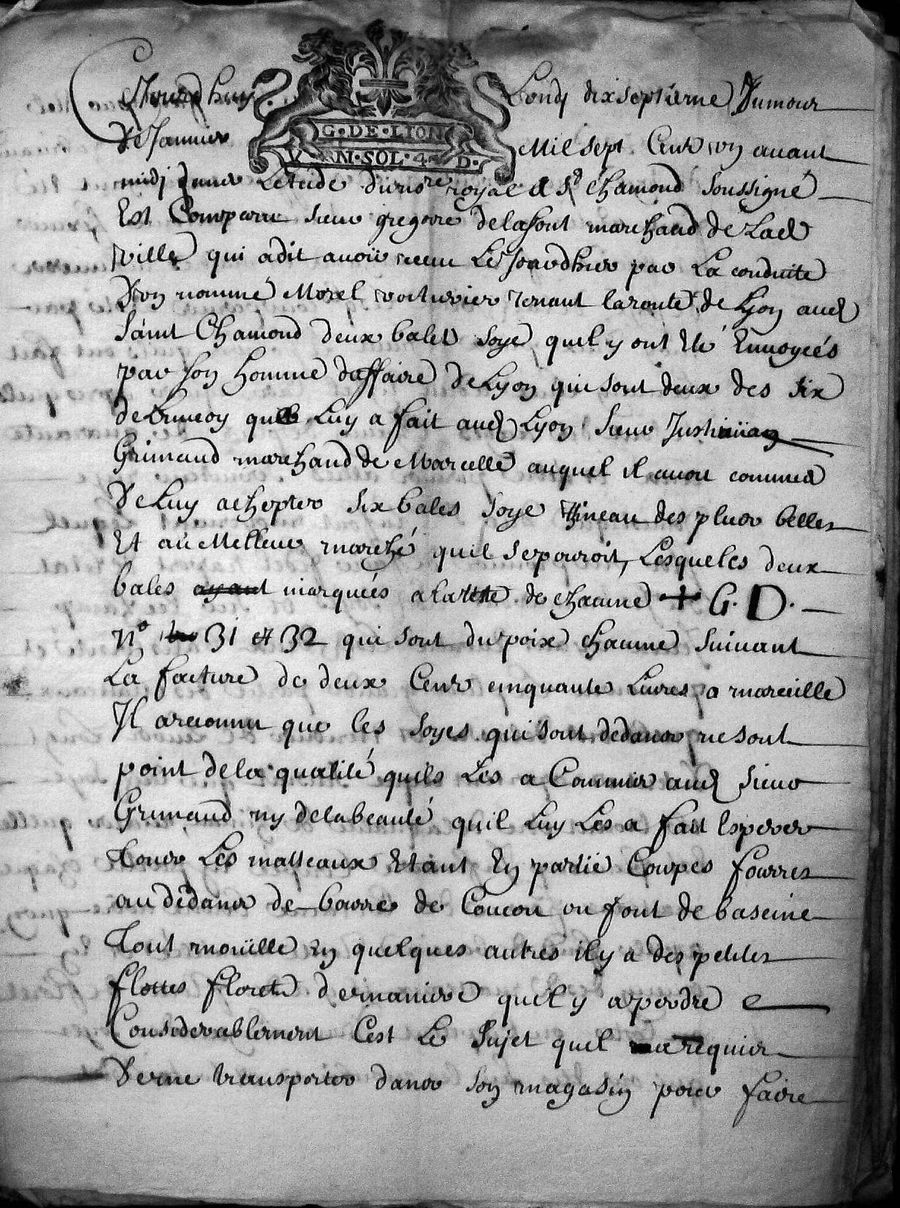 Cejourdhuy Lundj dixseptieme Jumour
de Januier Mil sept Cent un auant
G. DE LION
N. SOL. 4 D.
midj dans Letude du no.re royal a S.t chamond soussigné
Est Comparu sieur gregoire delafont marchand de Lad
ville qui adit auoir receu Le Jourdhier par La conduite
D'un nommé Morel voiturier tenant laroute de Lyon aud
Saint Chamond deux bales soye quil y ont Eté Enuoyées
par son homme daffaire deLyon qui sont deux des six
de Luy a fait aud Lyon sieur
Grimaud marchand de Marcelle auquel il auoit commis
De Luy achepter six bales soye des plus belles
Et au Melleur marché quil sepouroit, Lesqueles deux
bales ayant marquées alateste de chacune + G. D.
N.o 31 et 32 qui sont du poix chacune suiuant
La facture de deux Cent cinquante Liures a marceille
Il areconnu que les soyes qui sont dedans ne sont
point de la qualité quils Les a Commis aud sieur
Grimaud ny delabeauté quil Luy Les a fait Esperer
Tous Les matteaux Etant En partie Coupes fourres
au dedans de bourre de Coucou ou font de baseine
Tout moüille En quelques autres il y a des petites
flottes floret demaniere quil y aperdre
Considerablement Cest Le sujet quil ma requier
De me transporter dans son magasin pour faire